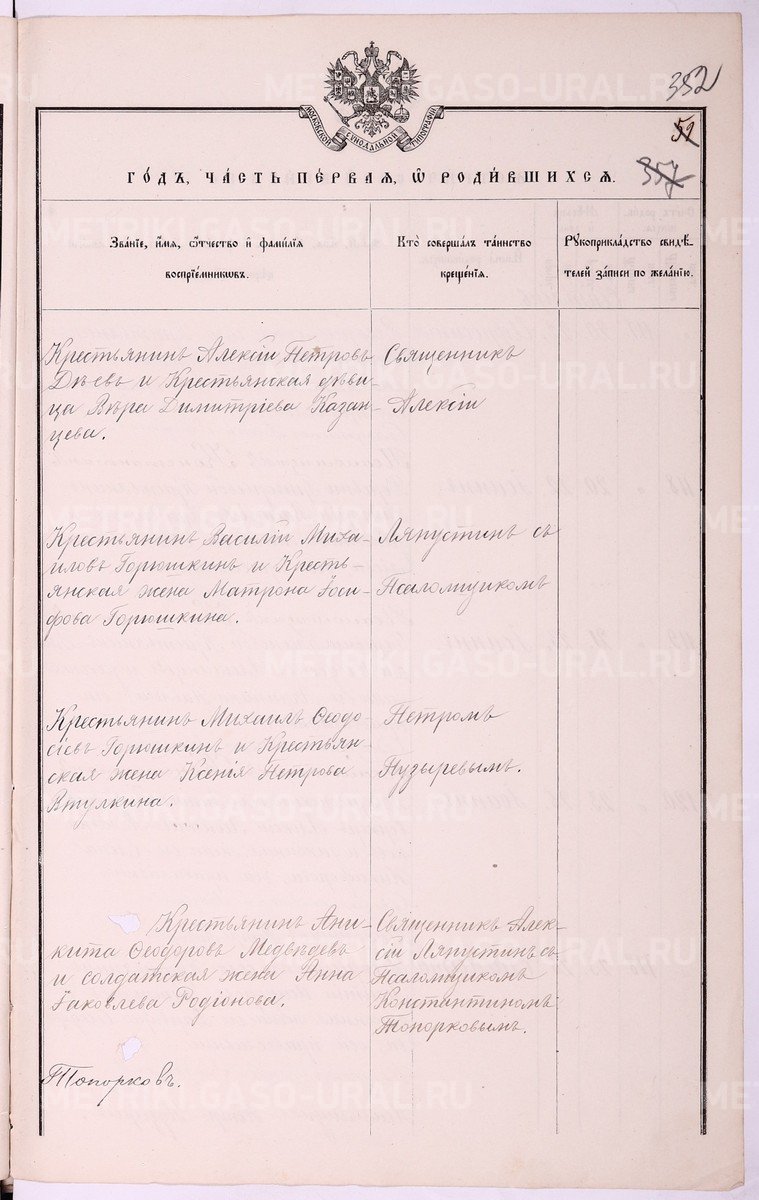 352
52
357
МОСКОВСКОЙ СѴНОДАЛЬНОЙ ТИПОГРАФІИ
ГО́ДЪ, ЧА́СТЬ ПЕ́РВАѦ, Ѽ РОДИ́ВШИХСѦ.
Зва́нїе, и҆́мѧ, ѻ҆́тчество и҆ фамі́лїѧ
воспрїе́мниковъ.
Кто̀ соверша́лъ та́инство
креще́нїѧ.
Рꙋкоприкла́дство свид̾ѣ́-
телей за́писи по жела́нїю.
Крестьянинъ Алексій Петровъ
Дѣевъ и Крестьянская дѣви-
ца Вѣра Димитріева Казан-
цева.
Священникъ
Алексій
Крестьянинъ Василій Миха-
иловъ Горюшкинъ и Кресть-
янская жена Матрона Іоси-
фова Горюшкина.
Ляпустинъ съ
Псаломщикомъ
Крестьянинъ Михаилъ Ѳеодо-
сіевъ Горюшкинъ и Крестьян-
ская жена Ксенія Петрова
Втулкина.
Петромъ
Пузыревымъ.
Крестьянинъ Ани-
кита Ѳеодоровъ Медвѣдевъ
и солдатская жена Анна
Іаковлева Родіонова.
Священникъ Алек-
сій Ляпустинъ съ
Псаломщикомъ
Константиномъ
Топорковымъ.
Топорковъ.
METRIKI.GASO-URAL.RU